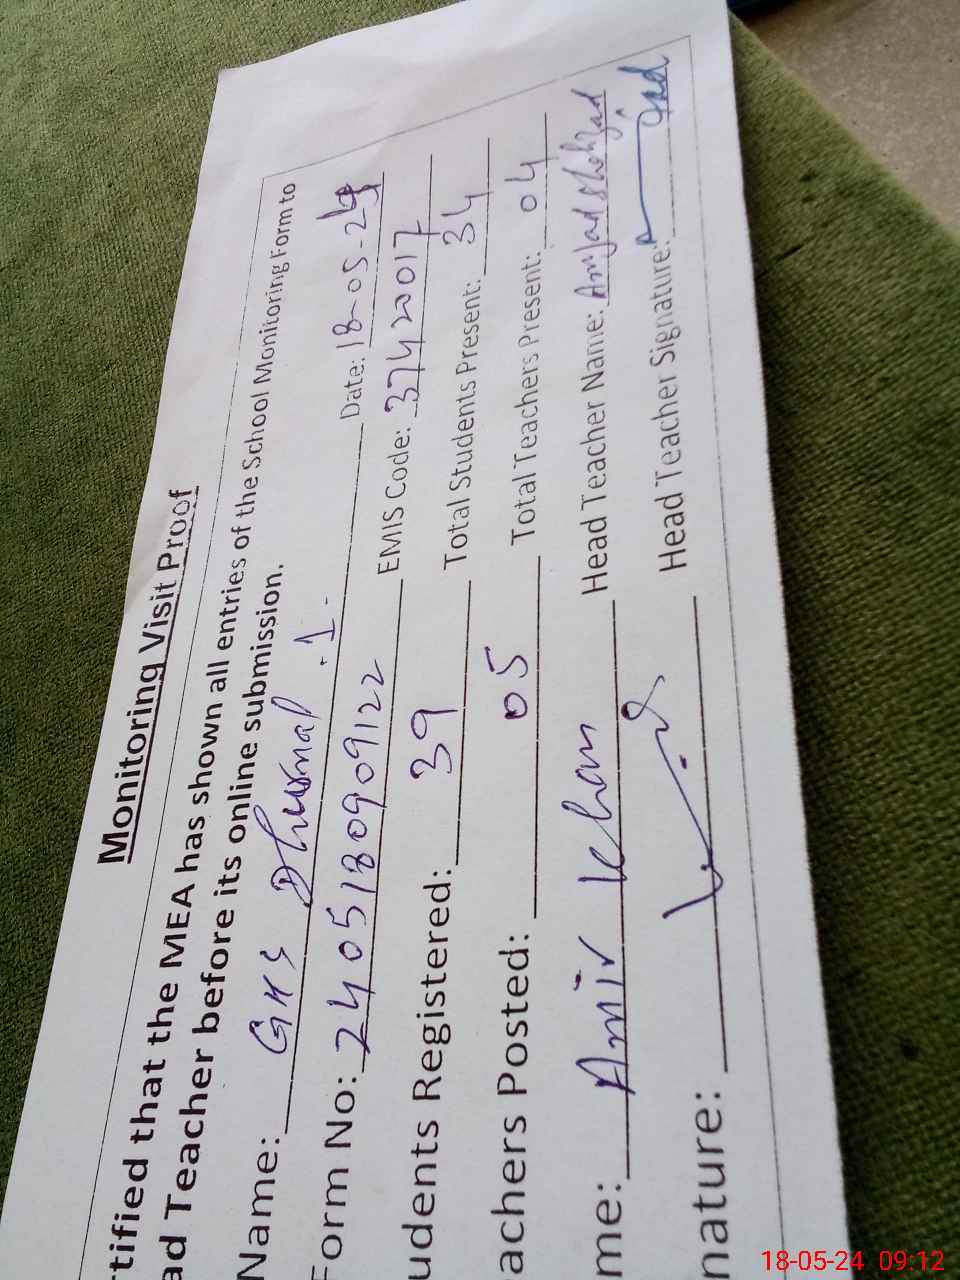 Monitoring Visit Proof
rtified that the MEA has shown all entries of the School Monitoring Form to
ad Teacher before its online submission.
Name: GHS Dhurnal .1- Date: 18-05-24
Form No: 2405180909122 EMIS Code: 37420017
udents Registered: 39 Total Students Present: 34
achers Posted: 05 Total Teachers Present: 04
me: Amir Khan Head Teacher Name: Amjad Shehzad
nature: Head Teacher Signature:
18-05-24 09:12